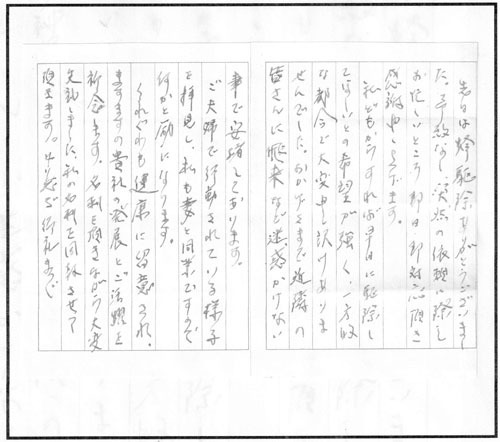 先日は蜂駆除ありがとうございまし
た。予約なし突然の依頼に際し
お忙しいところ即日即対応頂き
感謝申し上げます。
私どもからすれば早日に駆除し
てほしいとの希望が強く一方的
な都合で大変申し訳けありま
せんでした。おかげさまで近隣の
皆さんに飛来など迷惑かけない
事で安堵しております。
ご夫婦で行動されている様子
を拝見し、私も妻と同業ですので
何かと励になります。
くれぐれも健康に留意され、
ますますの貴社の発展とご活躍を
祈念します。名刺を頂きながら大変
失礼ですが、私の名刺を同封させて
頂きます。